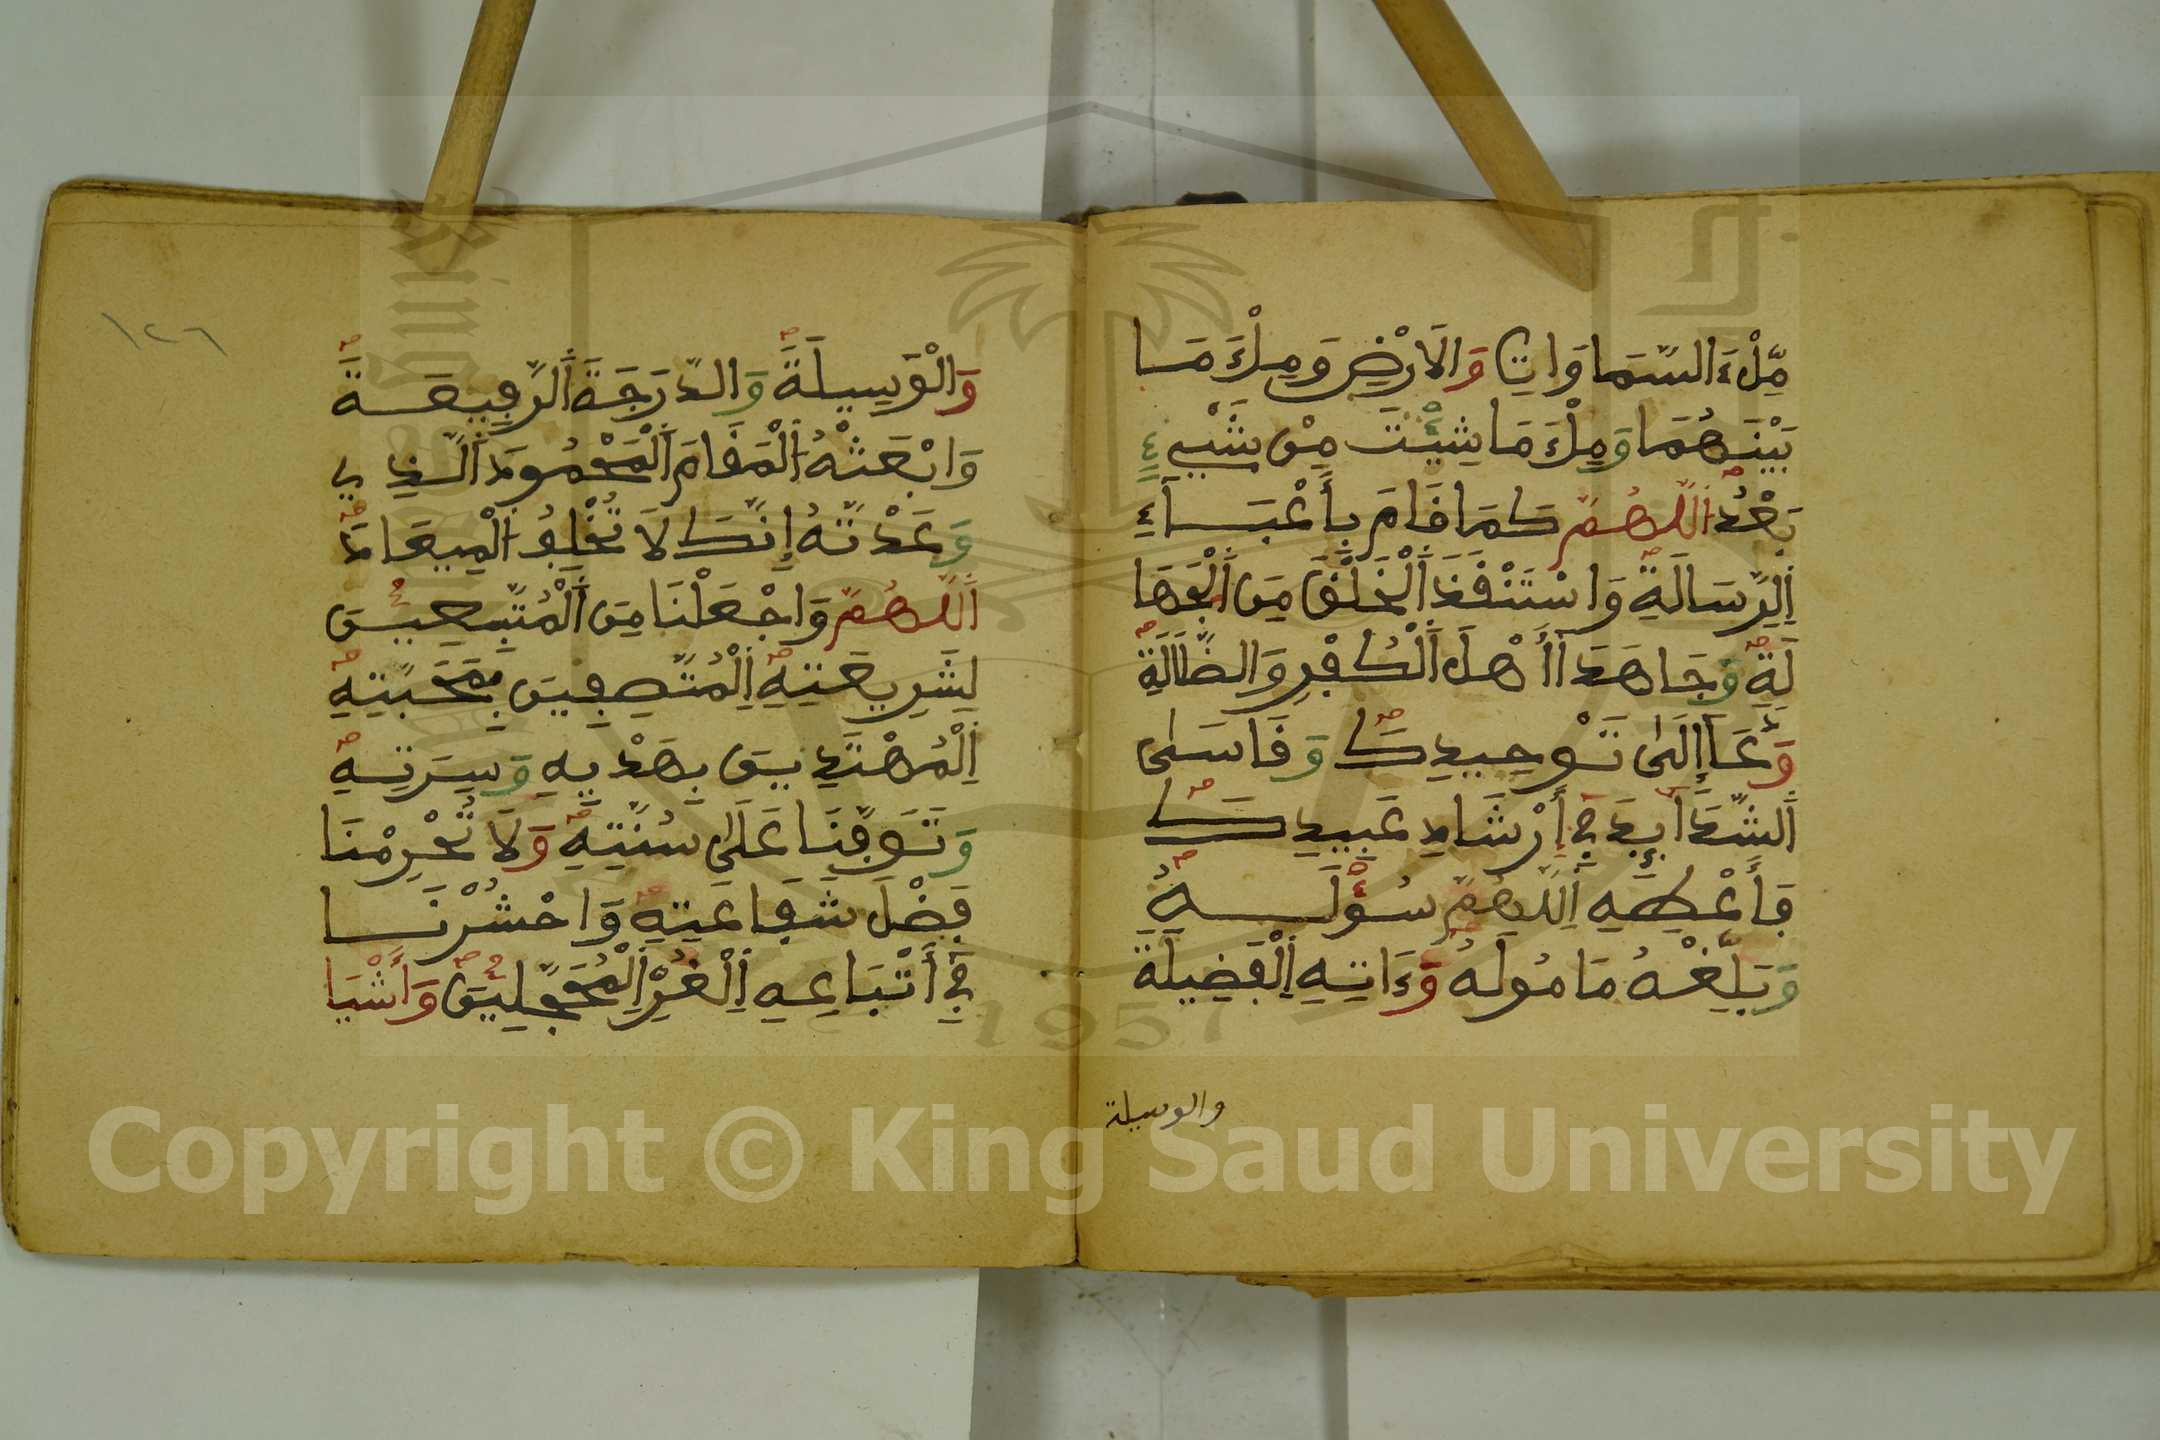 مِّلْءَ السَّمَاوَاتِ وَالَارْضِ وَمِلْءَ مَا
بَيْنَهُمَا وَمِلْءَ مَا شِئْتَ مِن شَيْءٍ
بَعْدُ اَللَّهُمَّ كَمَا قَامَ بِأَعْبَآءِ
اِلرِّسَالَةِ وَاسْتَنْقَذَ اَلْخَلْقَ مِنَ اَلْجَهَا
لَةِ وَجَاهَدَ أَهْلَ اَلْكُفْرِ وَالضَّلَالَةِ
وَدَعَا إِلَىٰ تَوْحِيدِكَ وَقَاسَىٰ
اَلشَّدَآئِدَ فِي إِرْشَادِ عَبِيدِكَ
فَأَعْطِهِ اِللَّهُمَّ سُؤْلَهُ
وَبَلِّغْهُ مَامُولَهُ وَءَاتِهِ اِلْفَضِيلَةَ
والوسيلة
١٢٦
وَالْوَسِيلَةَ وَالدَّرَجَةَ اَلرَّفِيعَةَ
وَابْعَثْهُ اَلْمَقَامَ اَلْمَحْمُودَ اَلَّذِي
وَعَدْتَّهُ إِنَّكَ لَا تُخْلِفُ اَلْمِيعَادَ
اَللَّهُمَّ وَاجْعَلْنَا مِنَ اَلْمُتَّبِعِينَ
لِشَرِيعَتِهِ اِلْمُتَّصِفِينَ بِمَحَبَّتِهِ
اِلْمُهْتَدِينَ بِهَدْيِهِ وَسِيرَتِهِ
وَتَوَفَّنَا عَلَىٰ سُنَّتِهِ وَلَا تُحْرِمْنَا
فَضْلَ شَفَاعَتِهِ وَاحْشُرْنَا
فِي أَتْبَاعِهِ اِلْغُرِّ اِلْمُحَجَّلِينَ وَأَشْيَا
1957
Copyright © King Saud University